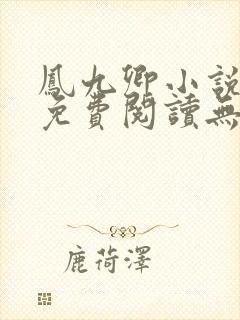 鳳九卿小說
免費閱讀無
鹿荷澤